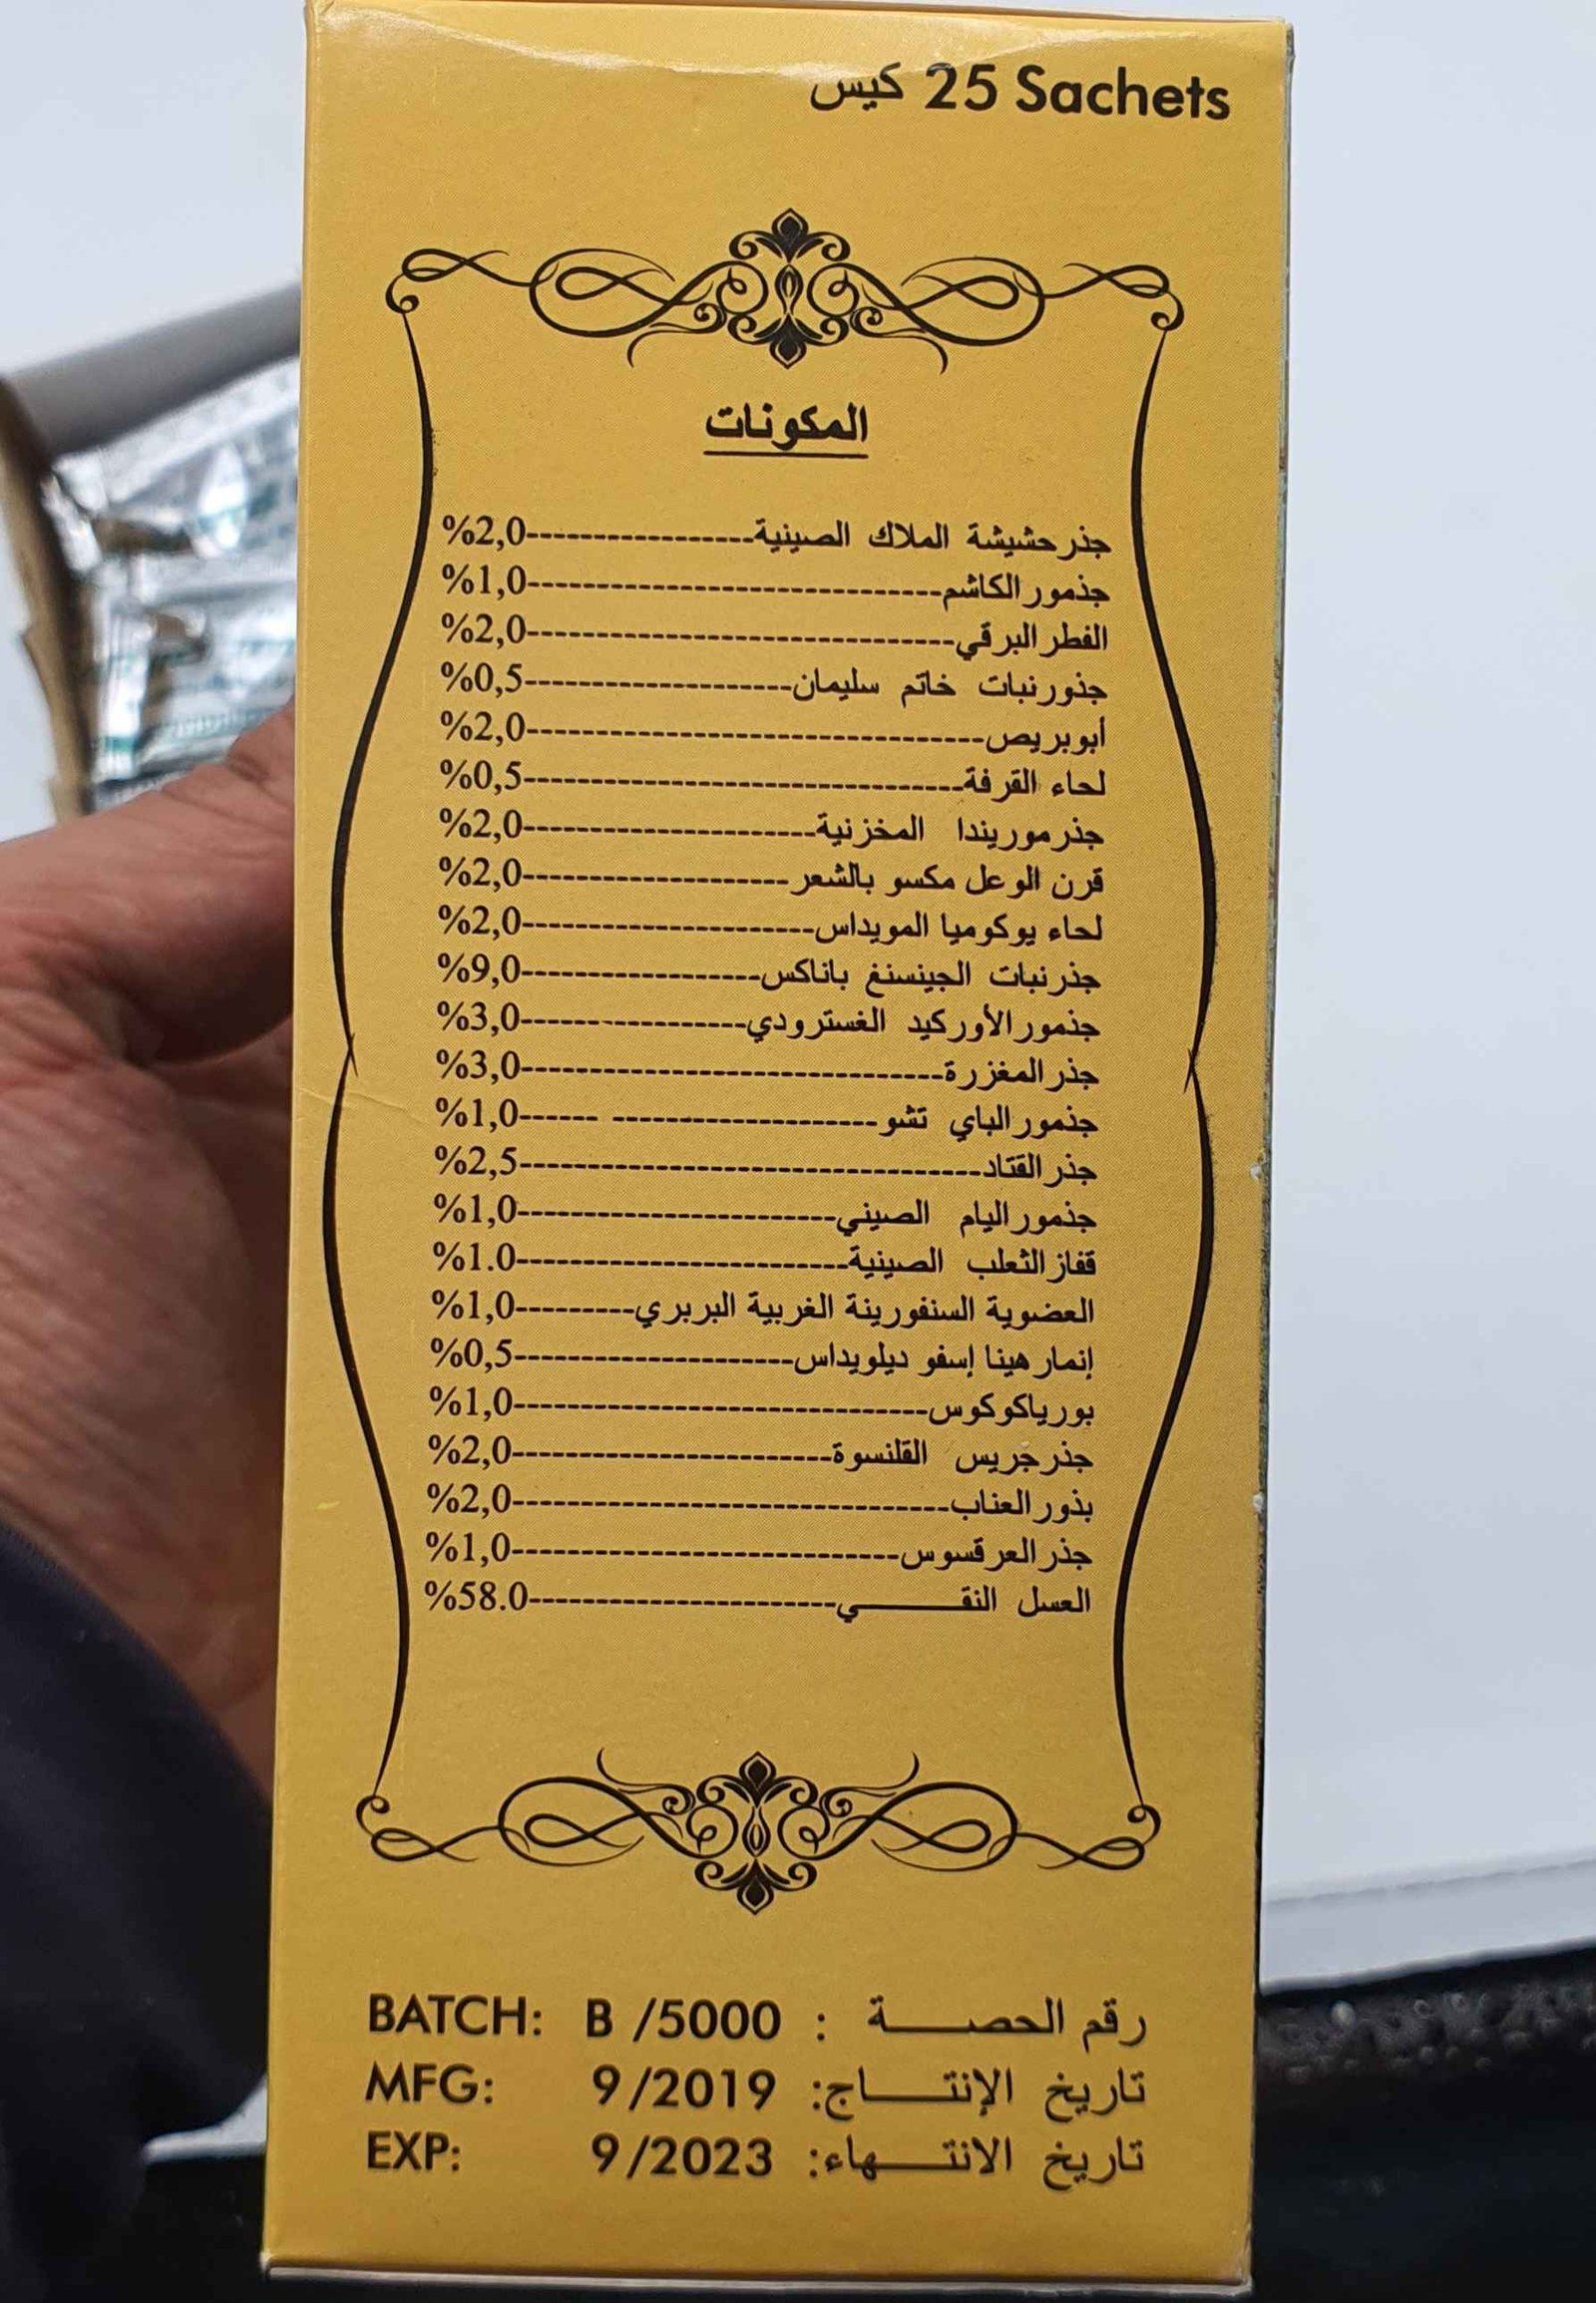 25 Sachets كيس
المكونات
جذر حشيشة الملاك الصينية------------------%2,0
جذمور الكاشم------------------------------%1,0
الفطر البرقي-------------------------------%2,0
جذور نبات خاتم سليمان--------------------%0,5
أبو بريص---------------------------------%2,0
لحاء القرفة--------------------------------%0,5
جذر موريندا المخزنية---------------------%2,0
قرن الوعل مكسو بالشعر-------------------%2,0
لحاء يوكوميا المويداس---------------------%2,0
جذر نبات الجينسنغ باناكس-----------------%9,0
جذمور الأوركيد الغسترودي----------------%3,0
جذر المغزرة------------------------------%3,0
جذمور الباي تشو------------------- ------%1,0
جذر القتاد---------------------------------%2,5
جذمور اليام الصيني-----------------------%1,0
قفاز الثعلب الصينية------------------------%1.0
العضوية السنفورينة الغربية البربري---------%1,0
إنمار هينا إسفو ديلويداس--------------------%0,5
بورياكوكوس------------------------------%1,0
جذر جريس القلنسوة-----------------------%2,0
بذور العناب-------------------------------%2,0
جذر العرقسوس----------------------------%1,0
العسل النقـــــــي----------------------%58.0
BATCH: B /5000 : رقم الحصـــــة
MFG: 9/2019 تاريخ الإنتـــــاج:
EXP: 9/2023 تاريخ الانتـــهاء: